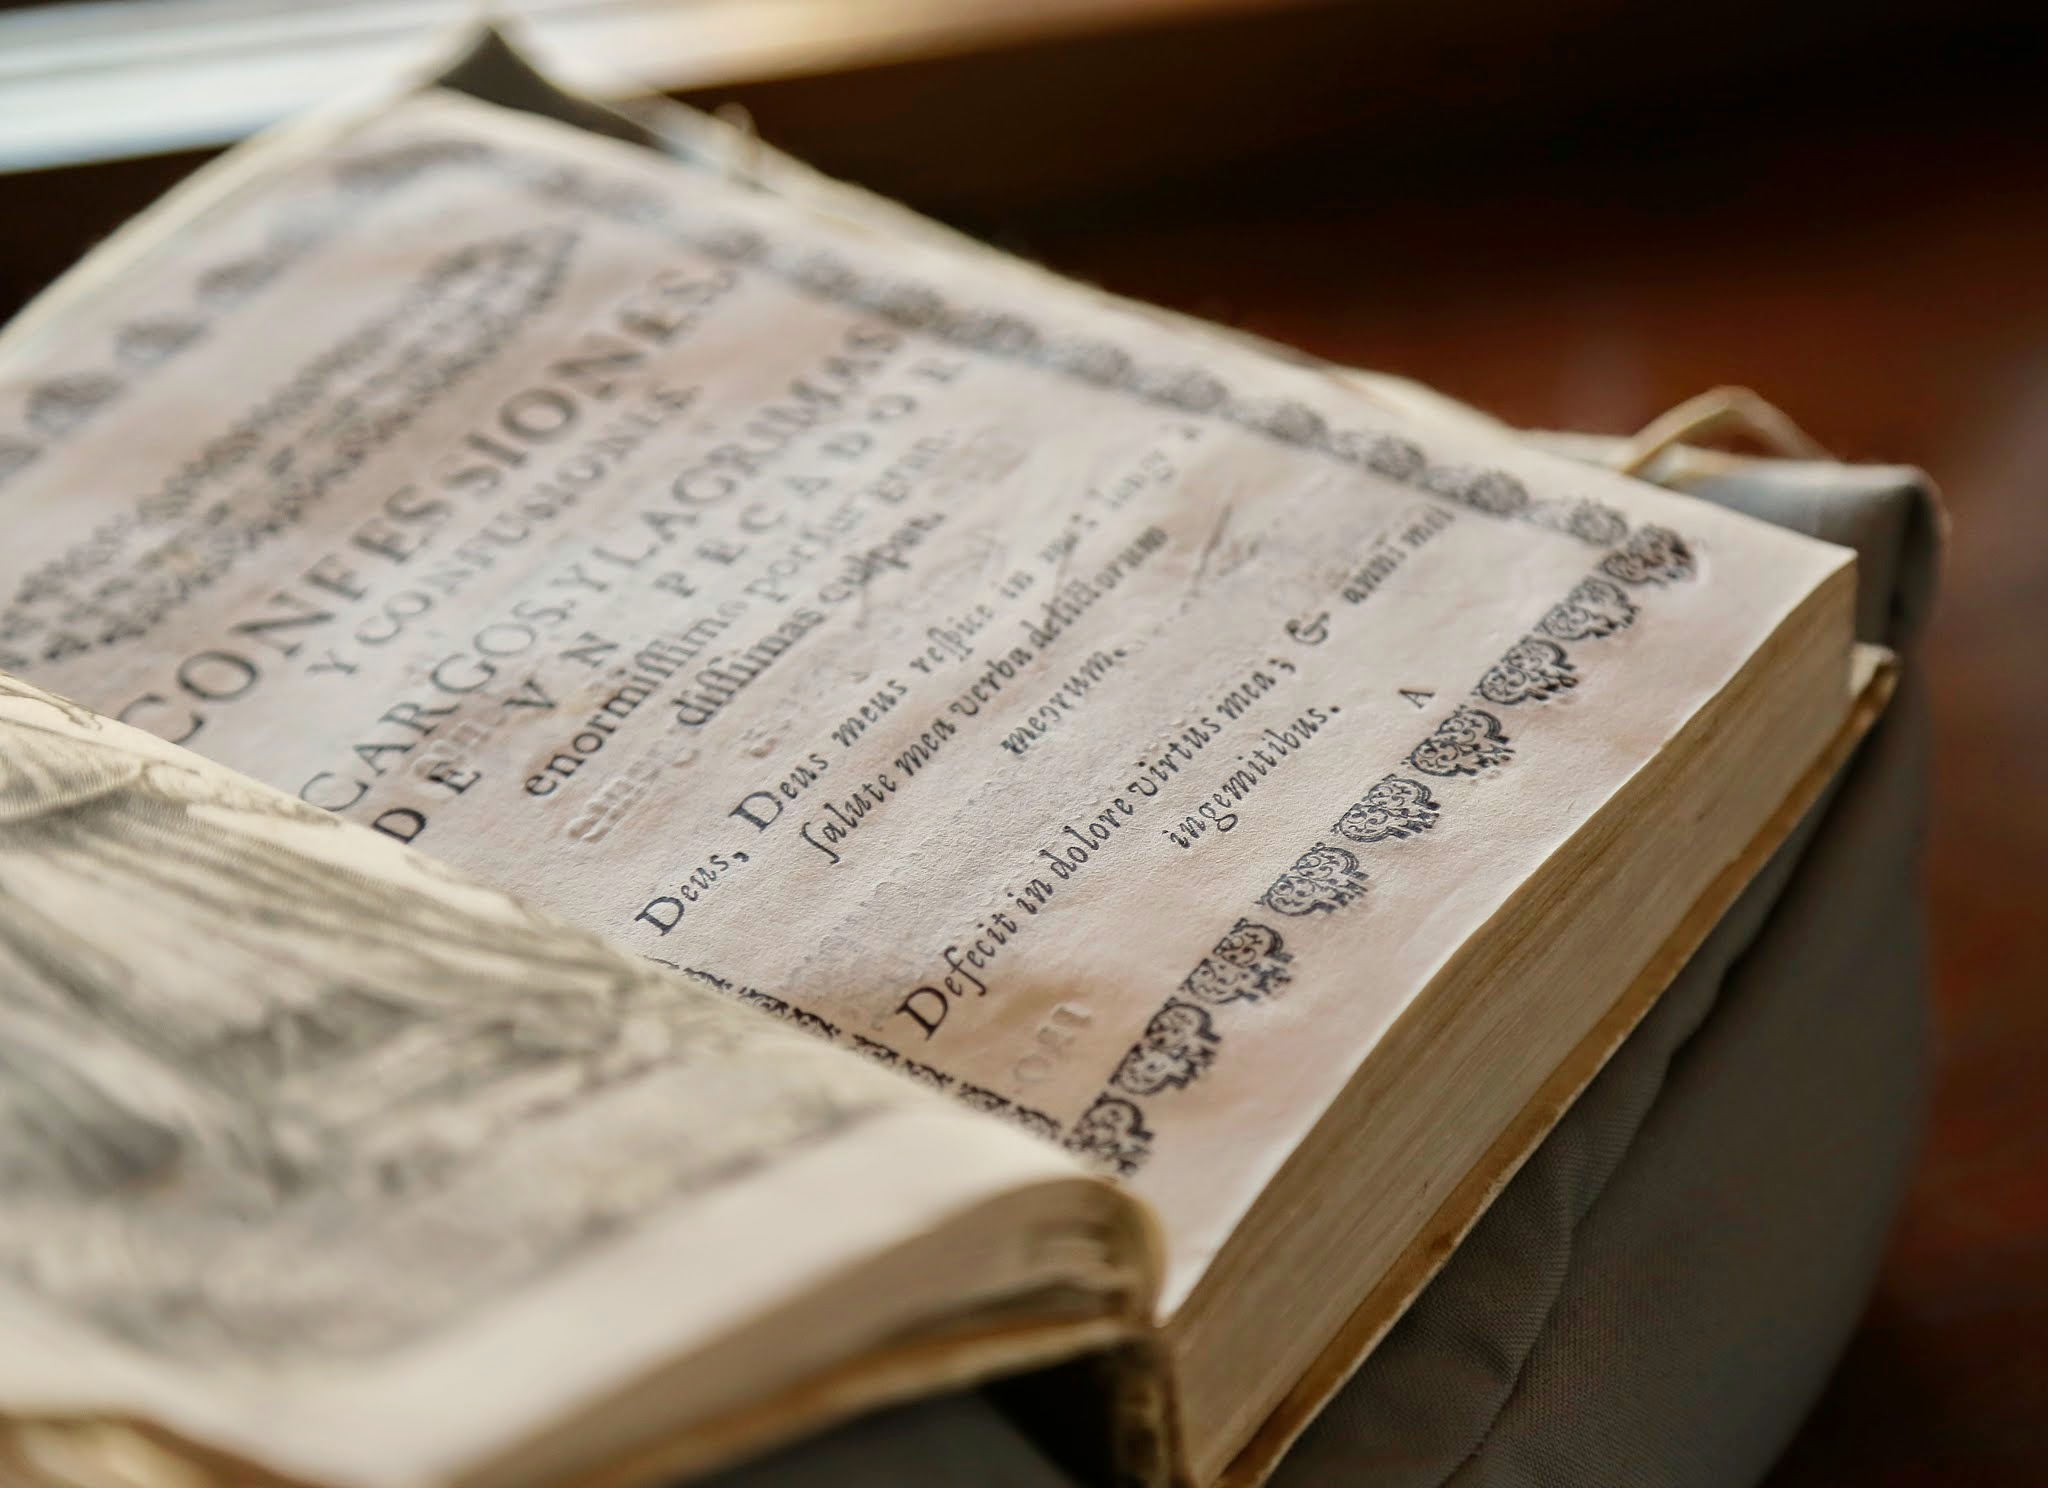 CONFESSIONES,
Y CONFUSIONES,
CARGOS, Y LAGRIMAS
DE VN PECADOR
enormissimo por sus gran-
dissimas culpas.
Deus, Deus meus respice in me: longe a
salute mea verba delictorum
meorum.
Defecit in dolore virtus mea; & anni mei
ingemitibus.
A